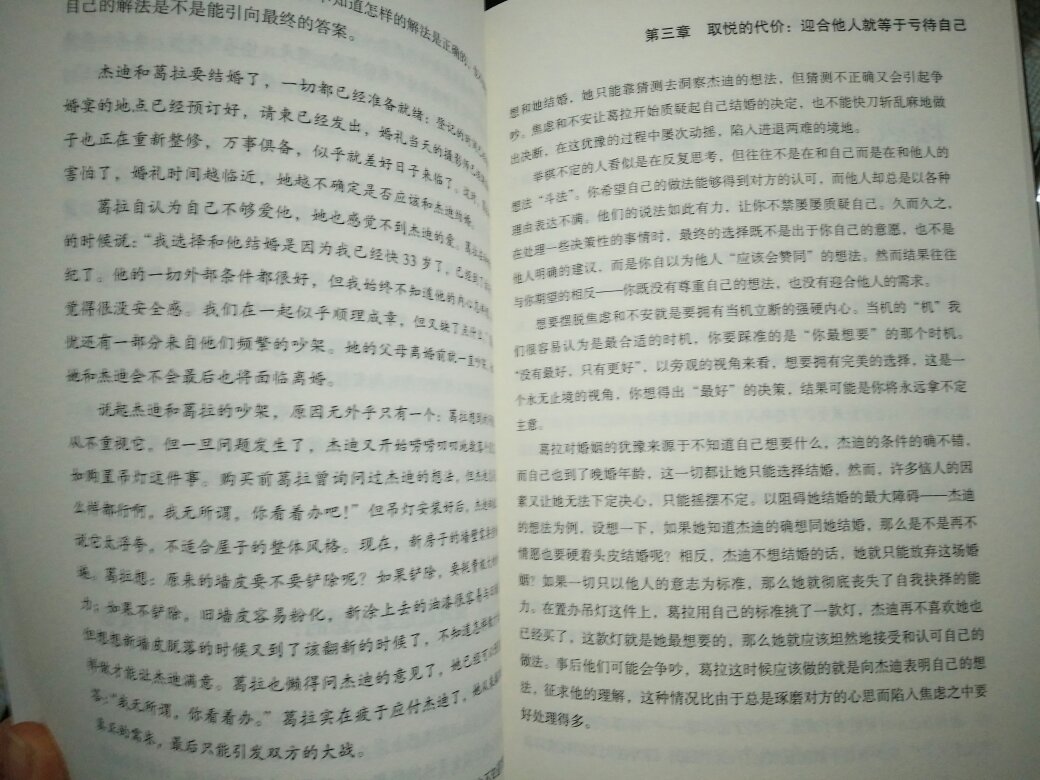 知道怎样的解法是正确的，
自己的解法是不是能引向最终的答案。
杰迪和葛拉要结婚了，一切都已经准备就绪：登记的时间
婚宴的地点已经预订好，请柬已经发出，婚礼当天的摄影师
子也正在重新整修，万事俱备，似乎就差好日子来临了。
害怕了，婚礼时间越临近，她越不确定是否应该和杰迪结婚。
葛拉自认为自己不够爱他，她也感觉不到杰迪的爱。葛拉
的时候说：“我选择和他结婚是因为我已经快33岁了，已经到了
纪了。他的一切外部条件都很好，但我始终不知道他的内心
觉得很没安全感。我们在一起似乎顺理成章，但又缺了点什么。”
忧还有一部分来自他们频繁的吵架。她的父母离婚前就一直吵架，
她和杰迪会不会最后也将面临离婚。
说起杰迪和葛拉的吵架，原因无外乎只有一个：葛拉想到的
从不重视它。但一旦问题发生了，杰迪又开始唠唠叨叨地
如购置吊灯这件事。购买前葛拉曾询问过杰迪的想法，但杰迪
么样都行啊，我无所谓，你看着办吧！”但吊灯安装好后，杰迪
说它太浮夸，不适合屋子的整体风格。现在，新房子的墙壁
葛拉想：原来的墙皮要不要铲除呢？如果铲除，要耗费
力；如果不铲除，旧墙皮容易粉化，新涂上去的油漆很容易
但想想新墙皮脱落的时候又到了该翻新的时候了，不知道怎样
样做才能让杰迪满意。葛拉也懒得问杰迪的意见了，她已经可以
答：“我无所谓，你看着办。”葛拉实在疲于应付杰迪了，他从
真正的需求，最后只能引发双方的大战。
第三章 取悦的代价：迎合他人就等于亏待自己
想和她结婚，她只能靠猜测去洞察杰迪的想法，但猜测不正确又会引起争
吵。焦虑和不安让葛拉开始质疑起自己结婚的决定，也不能快刀斩乱麻地做
出决断，在这犹豫的过程中屡次动摇，陷入进退两难的境地。
举棋不定的人看似是在反复思考，但往往不是在和自己而是在和他人的
想法“斗法”。你希望自己的做法能够得到对方的认可，而他人却总是以各种
理由表达不满。他们的说法如此有力，让你不禁屡屡质疑自己。久而久之，
在处理一些决策性的事情时，最终的选择既不是出于你自己的意愿，也不是
他人明确的建议，而是你自以为他人“应该会赞同”的想法。然而结果往往
与你期望的相反——你既没有尊重自己的想法，也没有迎合他人的需求。
想要摆脱焦虑和不安就是要拥有当机立断的强硬内心。当机的“机”我
们很容易认为是最合适的时机，你要踩准的是“你最想要”的那个时机。
“没有最好，只有更好”，以旁观的视角来看，想要拥有完美的选择，这是一
个永无止境的视角，你想得出“最好”的决策，结果可能是你将永远拿不定
主意。
葛拉对婚姻的犹豫来源于不知道自己想要什么，杰迪的条件的确不错，
而自己也到了晚婚年龄，这一切都让她只能选择结婚，然而，许多恼人的因
素又让她无法下定决心，只能摇摆不定。以阻碍她结婚的最大障碍——杰迪
的想法为例，设想一下，如果她知道杰迪的确想同她结婚，那么是不是再不
情愿也要硬着头皮结婚呢？相反，杰迪不想结婚的话，她就只能放弃这场婚
姻？如果一切只以他人的意志为标准，那么她就彻底丧失了自我抉择的能
力。在置办吊灯这件上，葛拉用自己的标准挑了一款灯，杰迪再不喜欢她也
已经买了，这款灯就是她最想要的，那么她就应该坦然地接受和认可自己的
做法。事后他们可能会争吵，葛拉这时候应该做的就是向杰迪表明自己的想
法，征求他的理解，这种情况比由于总是琢磨对方的心思而陷入焦虑之中要
好处理得多。